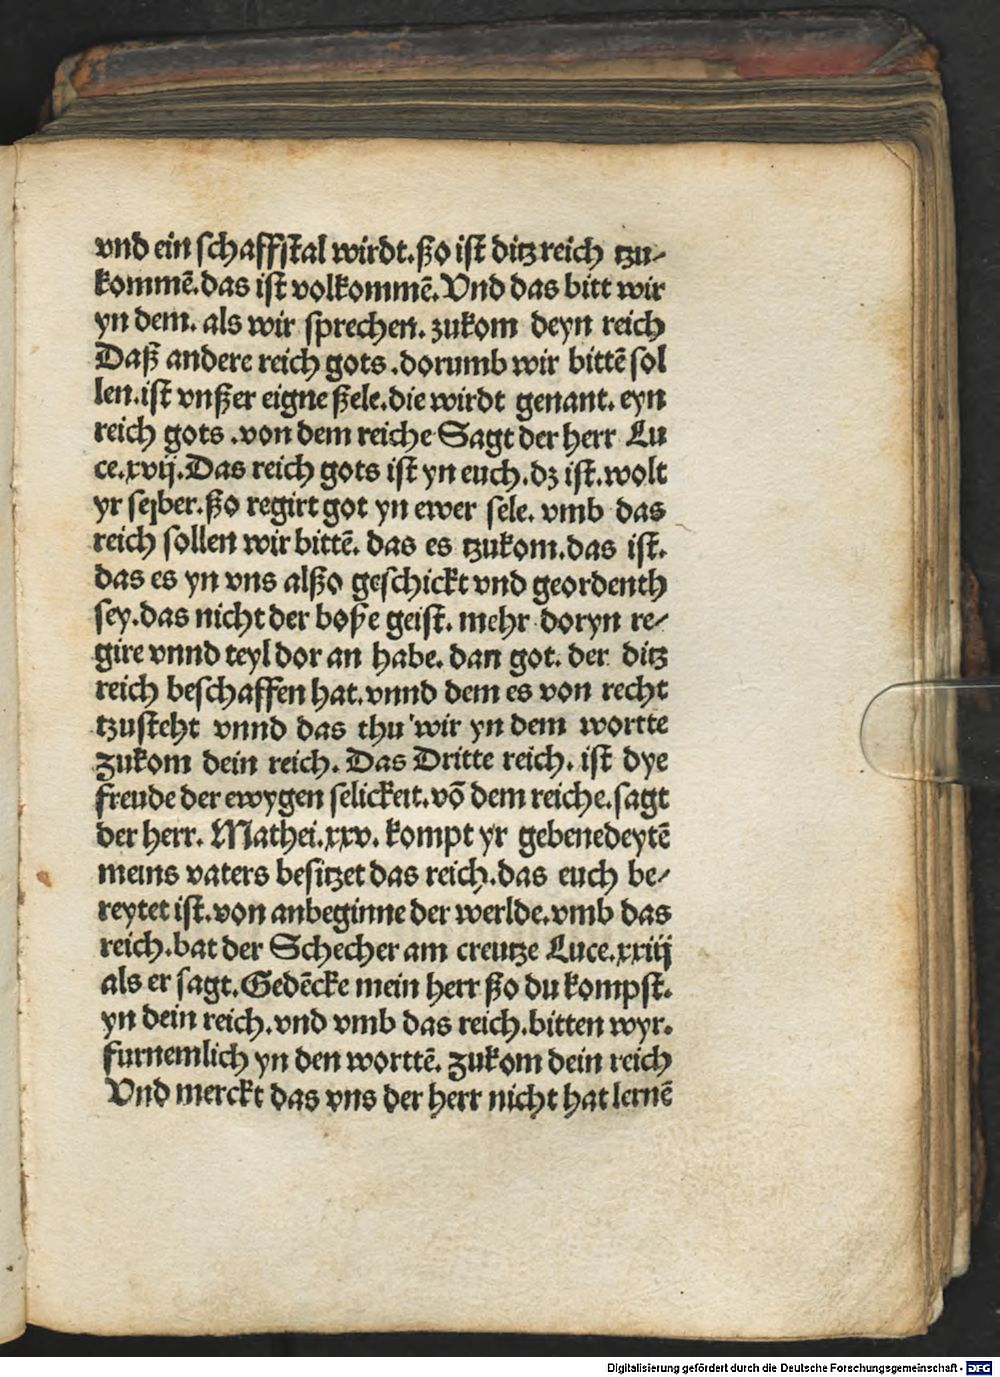 vnd ein schaffstal wirdt.ßo ist ditz reich tzu⸗
kommē.das ist volkommē.Vnd das bitt wir
yn dem. als wir sprechen. zukom deyn reich
Daß andere reich gots .dorumb wir bittē sol
len.ist vnßer eigne ßele.die wirdt genant. eyn
reich gots .von dem reiche Sagt der herr Lu
ce.xvij.Das reich gots ist yn euch.dz ist.wolt
yr selber.ßo regirt got yn ewer sele. vmb das
reich sollen wir bittē. das es tzukom.das ist.
das es yn vns alßo geschickt vnd geordenth
sey.das nicht der boße geist. mehr doryn re⸗
gire vnnd teyl dor an habe. dan got. der ditz
reich beschaffen hat.vnnd dem es von recht
tzusteht vnnd das thu wir yn dem wortte
zukom dein reich. Das Dritte reich. ist dye
freude der ewygen selickeit.vō dem reiche.sagt
der herr. Mathei.xxv. kompt yr gebenedeytē
meins vaters besitzet das reich.das euch be⸗
reytet ist.von anbeginne der werlde.vmb das
reich.bat der Schecher am creutze Luce.xxiij
als er sagt.Gedēcke mein herr ßo du kompst.
yn dein reich.vnd vmb das reich.bitten wyr.
furnemlich yn den worttē. zukom dein reich
Vnd merckt das vns der herr nicht hat lernē
Digitalisierung gefördert durch die Deutsche Forschungsgemeinschaft - DFG